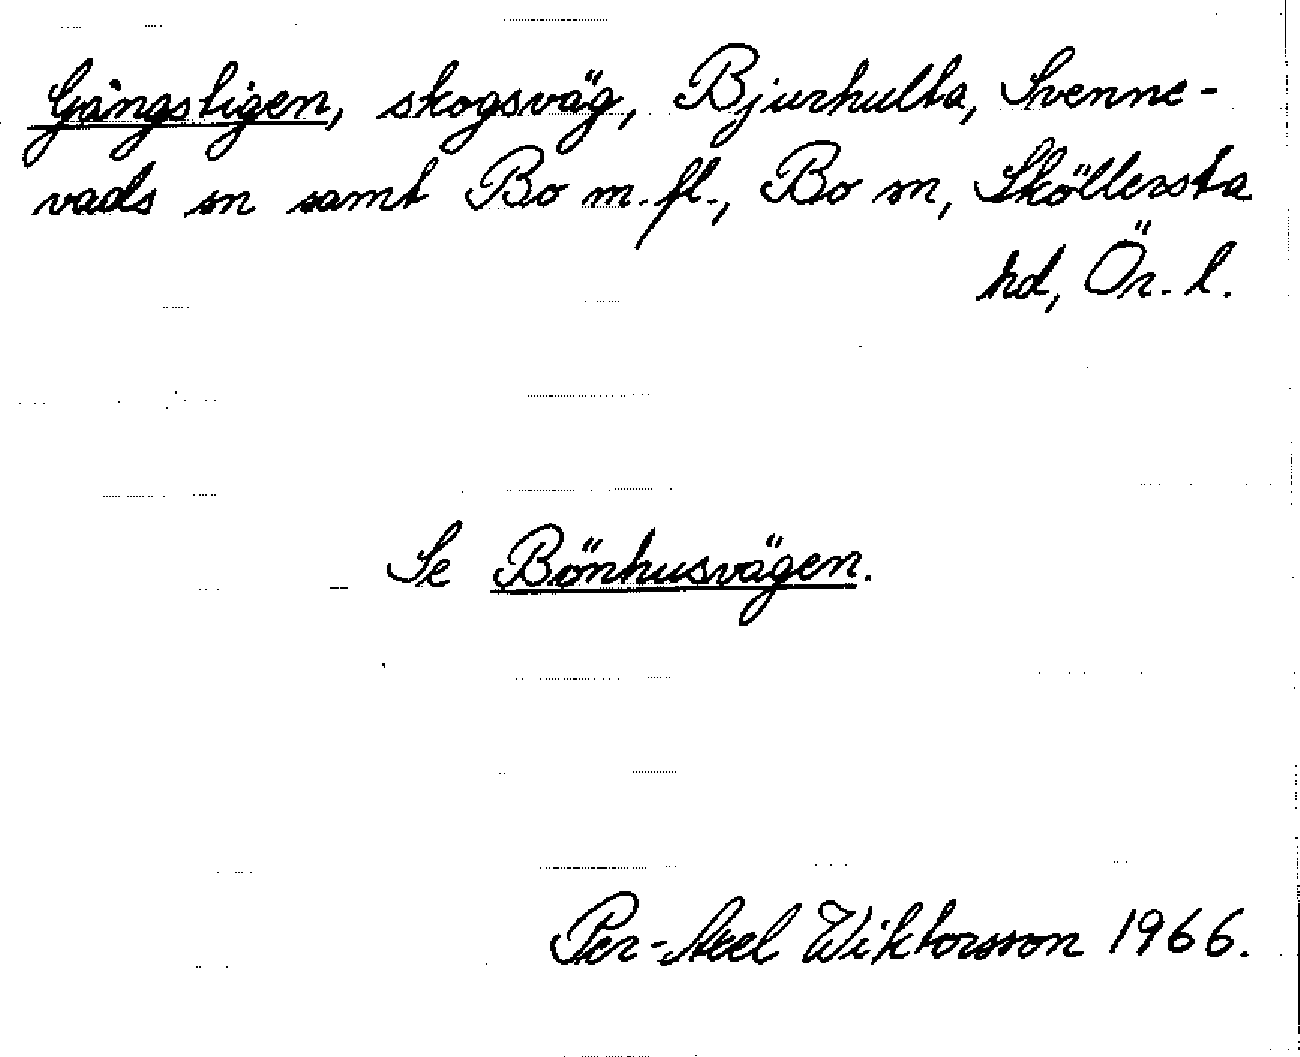 Gångstigen, skogsväg, Bjurhulta, Svenne-
vads sn samt Bo m. fl., Bo sn, Sköllersta
hd, Ör. l.
Se Bönhusvägen.
Per-Axel Wiktorsson 1966.